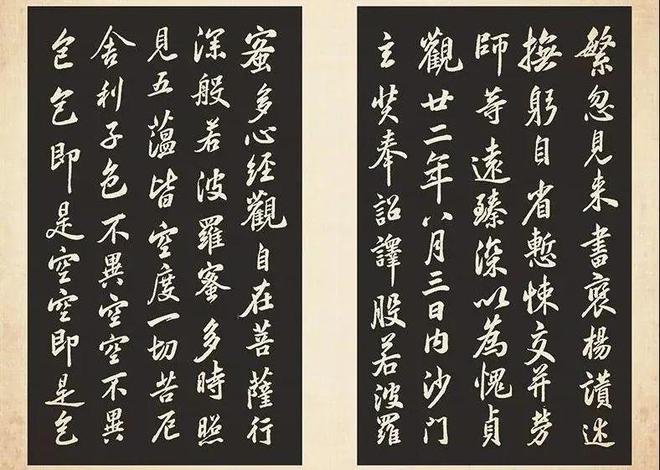 繁忽見来書褒揚讃述
撫躬自省慙悚交并勞
師等遠臻深以為愧貞
觀廿二年八月三日内沙門
玄奘奉詔譯般若波羅
蜜多心經觀自在菩薩行
深般若波羅蜜多時照
見五蘊皆空度一切苦厄
舍利子色不異空空不異
色色即是空空即是色